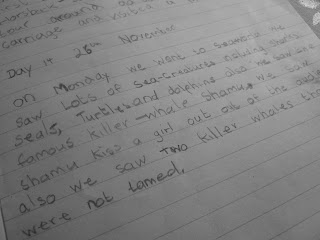 carriage and visited a
Day 11 25th November
On Monday we went to seaworld we
saw lots of sea-creatures including sharks,
seals, Turtles and dolphins also we saw the
famous killer-whale Shamu, we saw
Shamu kiss a girl out of the audience
also we saw TWO killer whales that
were not tamed.